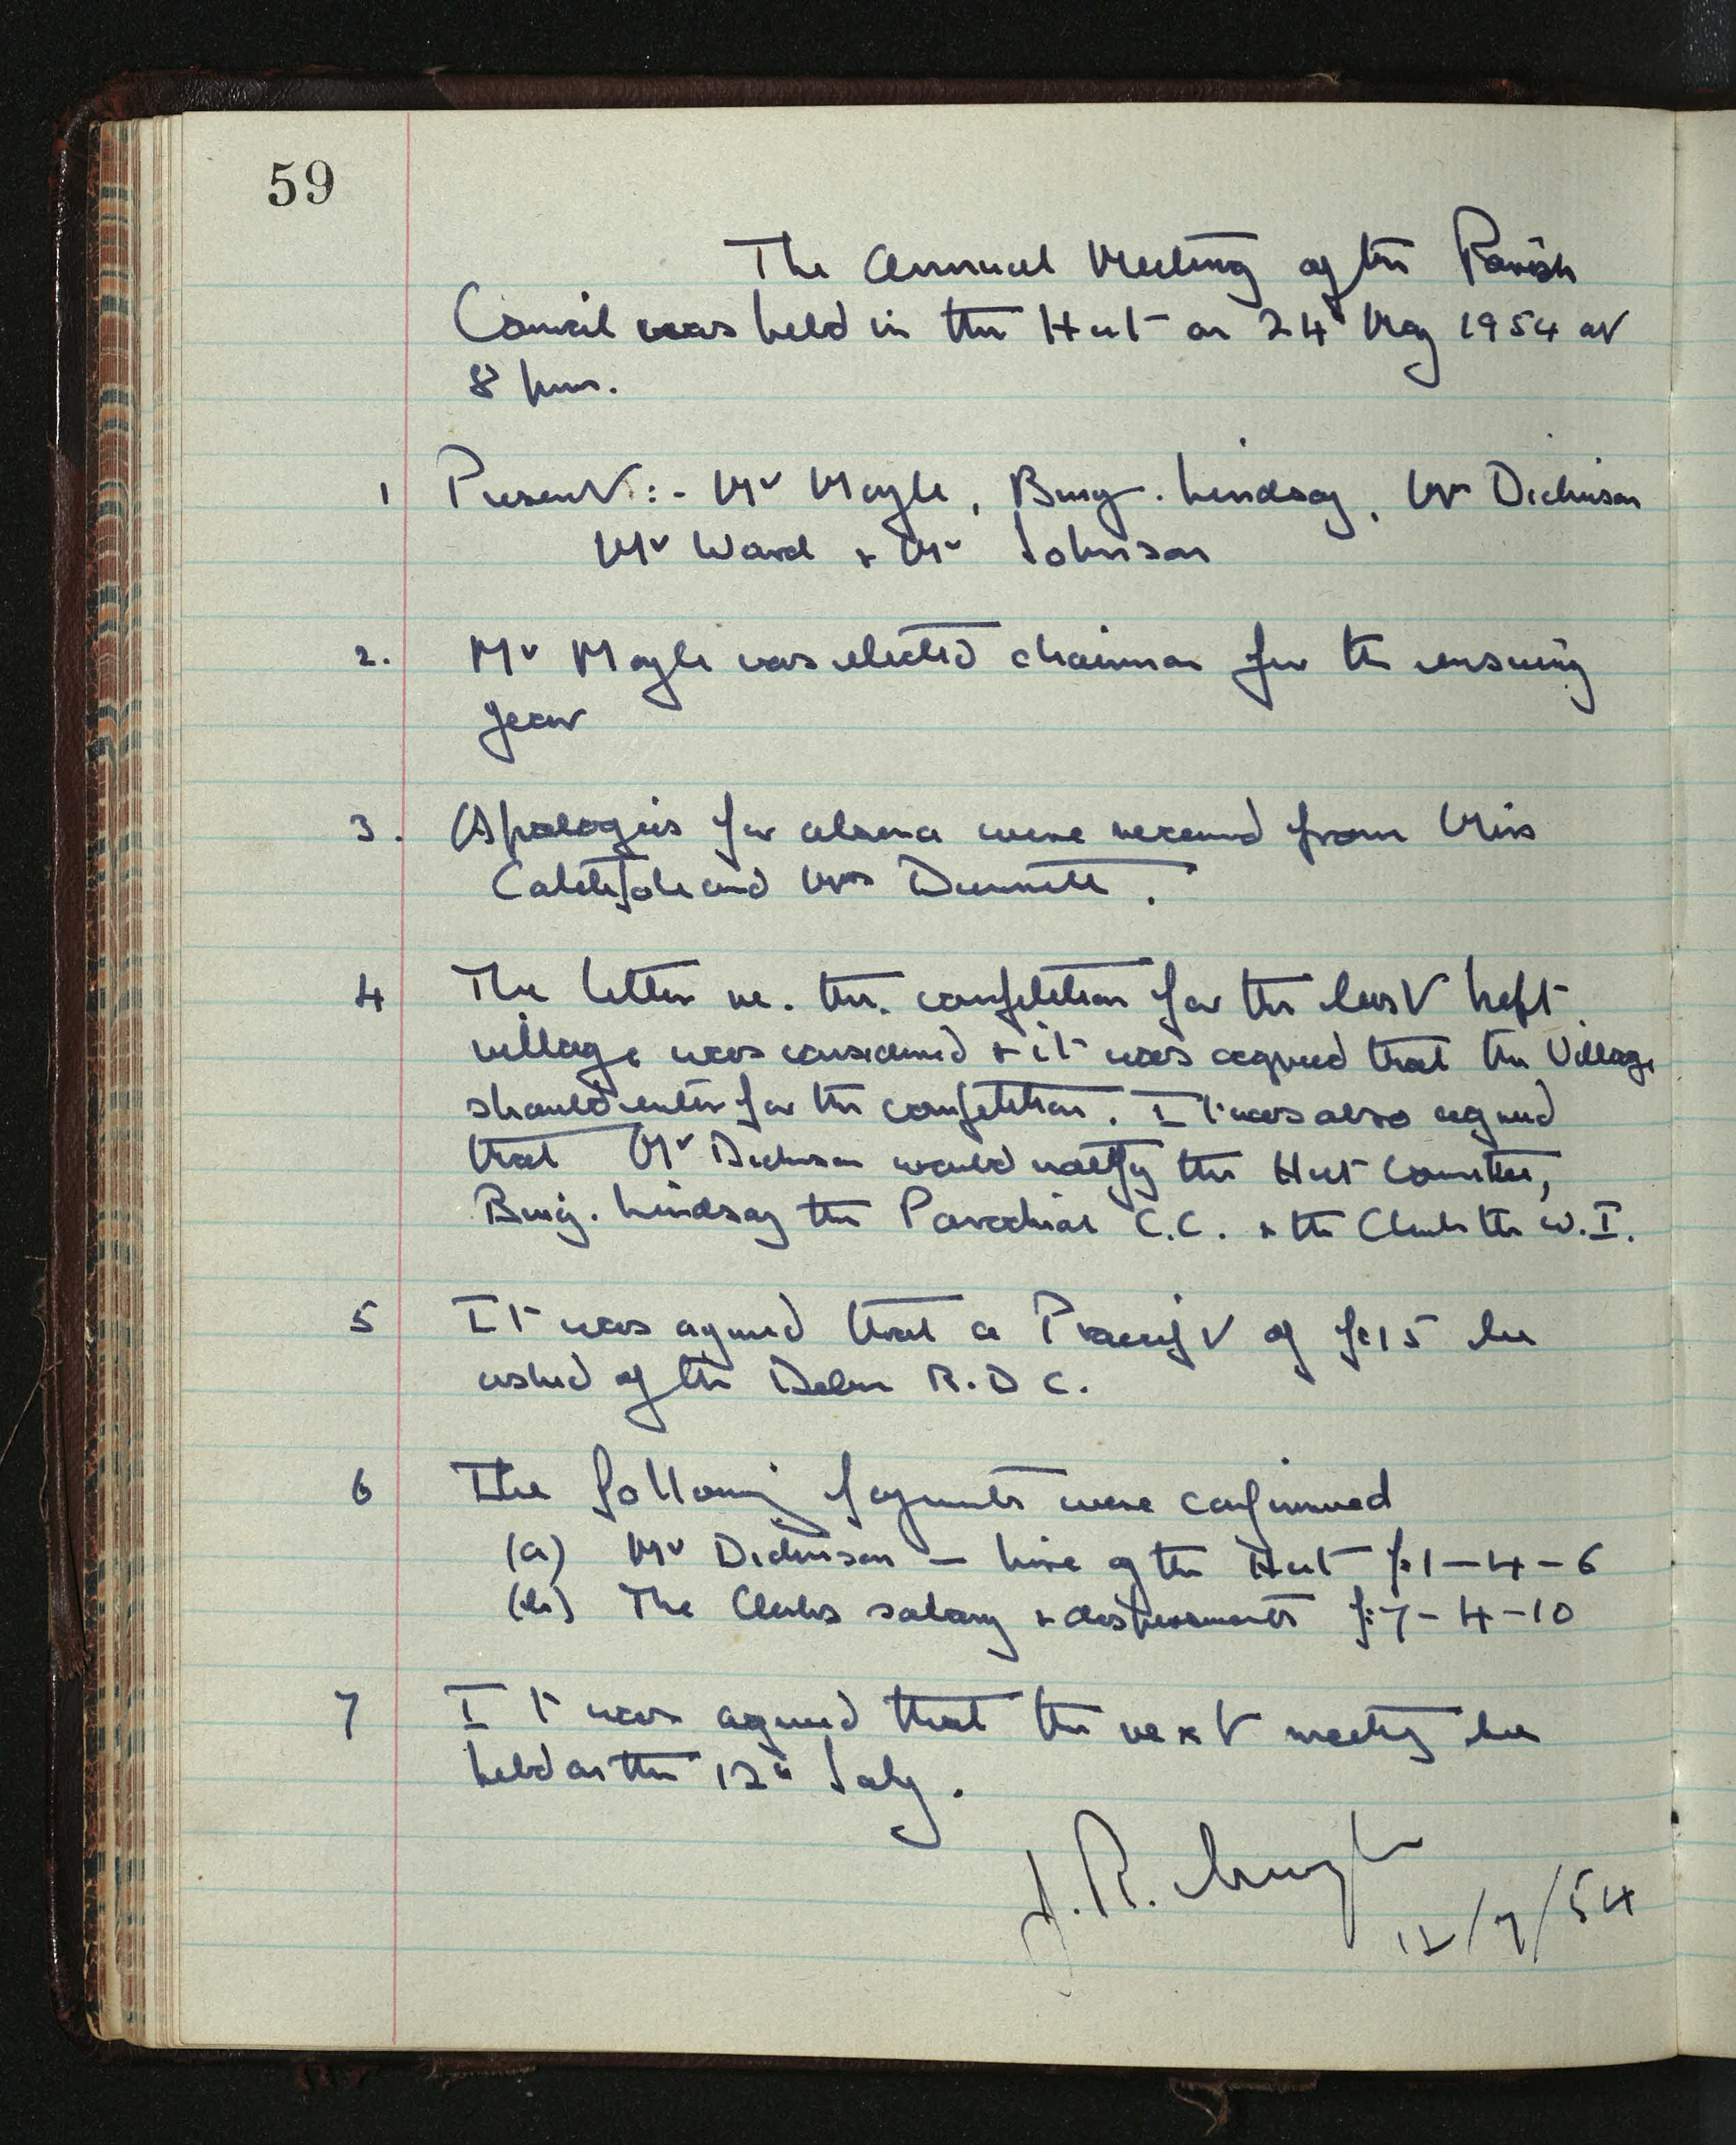 59
The Annual Meeting of the Parish
Council was held in the Hut on 24 May 1954 at
8 pm.
1 Present :- Mr Mayle, Brig. Lindsay, Mr Dickinson
Mr Ward + Mr Johnson
2. Mr Mayle was elected chairman for the ensuing
year
3. Apologies for absence were received from Miss
and Mrs Dunnett.
4 The letter re. the competition for the best kept
village was considered + it was agreed that the Village
should enter for the competition. It was also agreed
that Mr Dickinson would notify the Hut Committee,
Brig. Lindsay the Parochial C.C. + the Clerk the W.I.
5 It was agreed that a Precept of £15 be
asked of the R.D.C.
6 The following payments were confirmed
(a) Mr Dickinson — hire of the Hut £1-4-6
(b) The Clerks salary + disbursements £7-4-10
7 It was agreed that the next meeting be
held on the 12th July.
J. R. Mayle
12/7/54